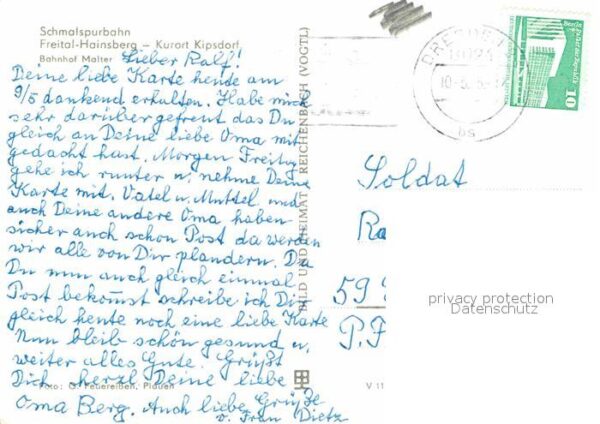 Schmalspurbahn
Freital-Hainsberg – Kurort Kipsdorf
Bahnhof Malter
Lieber Ralf!
Deine liebe Karte heute am
9/5 dankend erhalten. Habe mich
sehr darüber gefreut das Du
gleich an Deine liebe Oma mit
gedacht hast. Morgen Freitag
gehe ich runter u. nehme Deine
Karte mit. Vatel u. Muttel und
auch Deine andere Oma haben
sicher auch schon Post da werden
wir alle von Dir plaudern. Da
Du nun auch gleich einmal
Post bekomst schreibe ich Dir
gleich heute noch eine liebe Karte
Nun bleib schön gesund u.
weiter alles Gute. Grüßt
Dich herzl. Deine liebe
Oma Berg. Auch liebe Grüße
v. Frau Dietz
Foto: G. Feuereißen, Plauen
V 11
BILD UND HEIMAT REICHENBACH (VOGTL)
DRESDEN
10
Soldat
Ra
59
P.F
privacy protection
Datenschutz